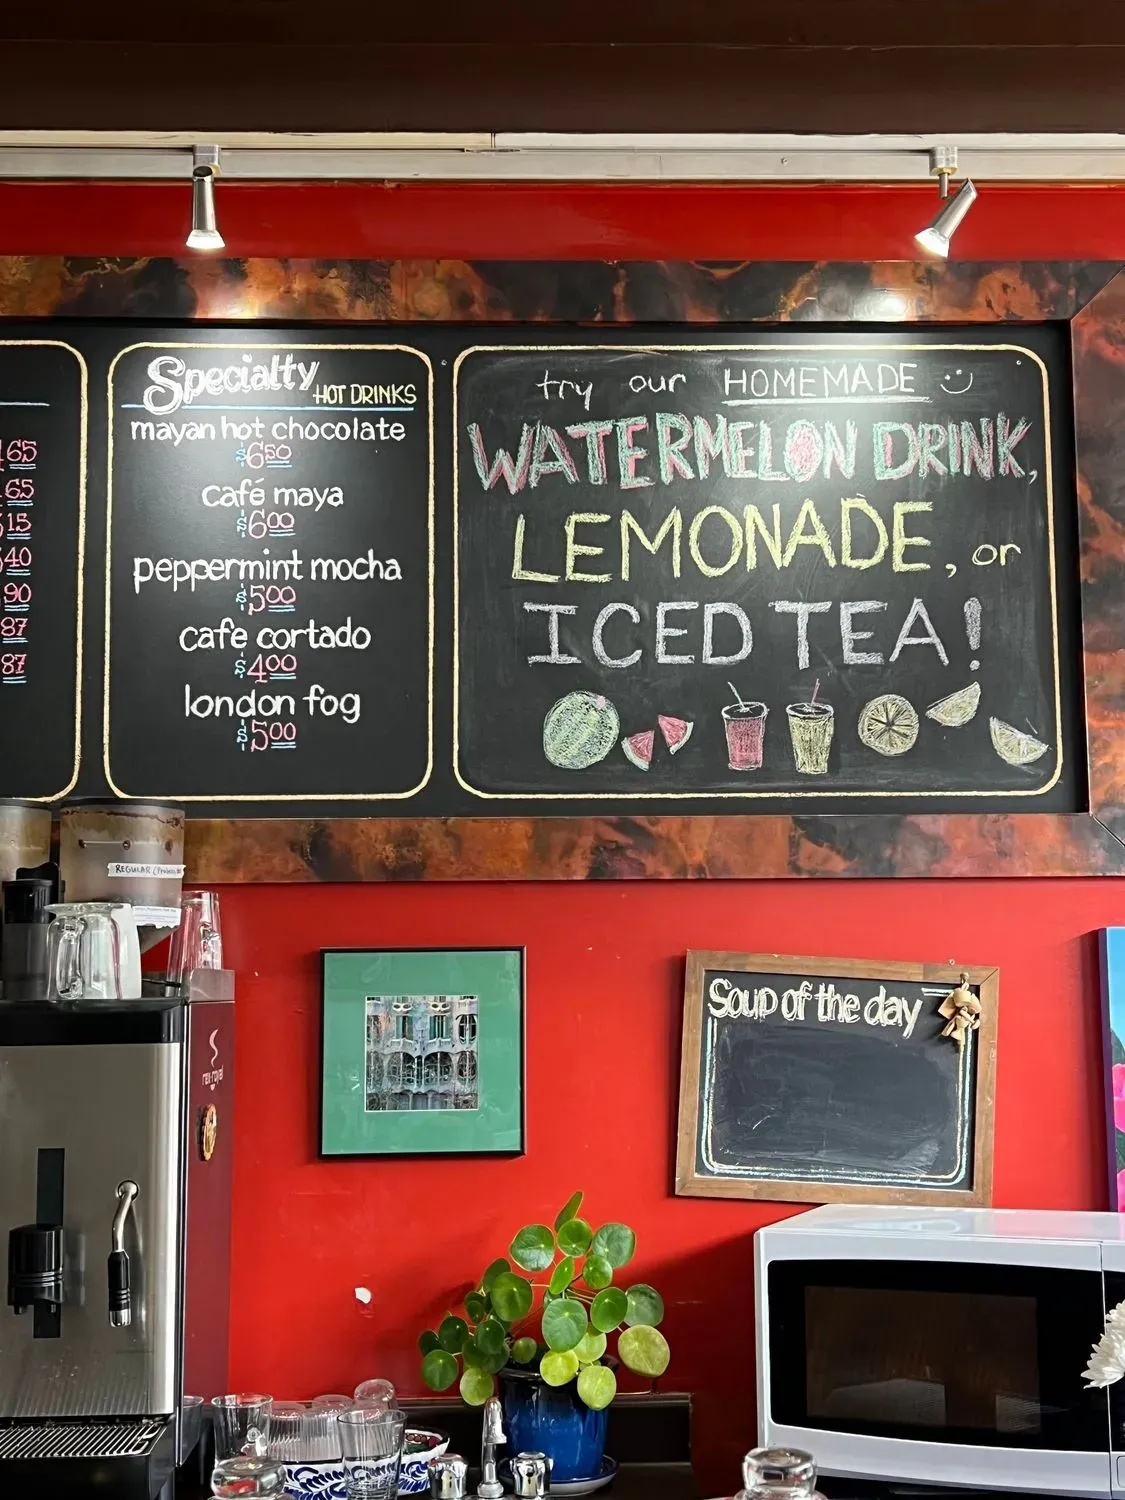 65
65
15
40
90
87
87
Specialty
HOT DRINKS
mayan hot chocolate
$6.50
café maya
$6.00
peppermint mocha
$5.00
cafe cortado
$4.00
london fog
$5.00
try our HOMEMADE
WATERMELON DRINK,
LEMONADE, or
ICED TEA!
REGULAR
Soup of the day
rex-royal